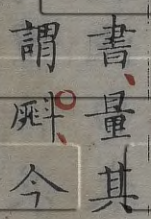 書量其
謂今